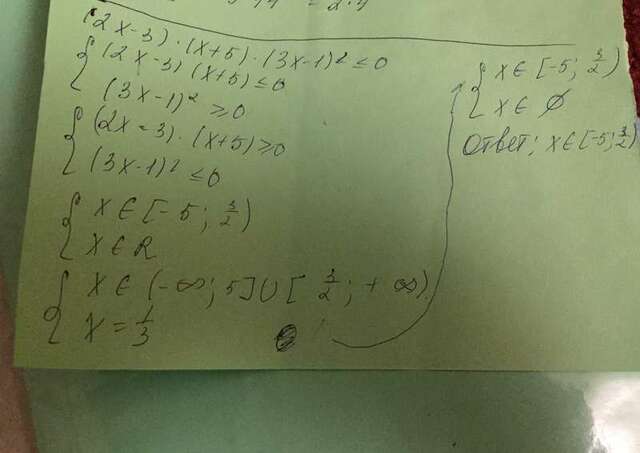 (2x-3)·(x+5)·(3x-1)² ≤ 0
{ (2x-3)(x+5) ≤ 0
(3x-1)² ≥ 0
{ (2x-3)·(x+5) ≥ 0
(3x-1)² ≤ 0
{ x ∈ [-5; 3/2)
x ∈ R
{ x ∈ (-∞; 5] ∪ [3/2; +∞)
x = 1/3
{ x ∈ [-5; 3/2)
x ∈ ∅
Ответ; x ∈ [-5; 3/2)